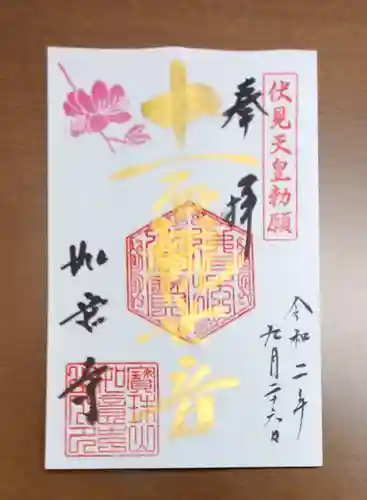 伏見天皇勅願
奉拝
十一面観世音
如意寺
令和二年
九月二十六日
寶珠山
如意